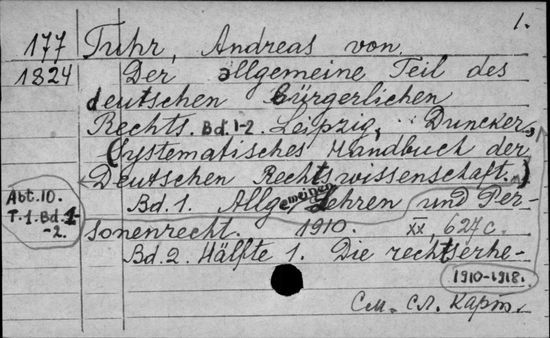 1.
177 Tuhr, Andreas von.
1324 Der allgemeine Teil des
deutschen bürgerlichen
Rechts. Bd. 1-2. Leipzig, Duncker,
(Systematisches Handbuch der
Deutschen Rechtswissenschaft.)
Abt. 10.
T. 1. Bd. 1
-2.
Bd. 1. Allgemeinen Lehren und Per-
sonenrecht. 1910. XX, 627 c.
Bd. 2. Hälfte 1. Die rechtserhe-
1910-1918.
См. сл. карт.